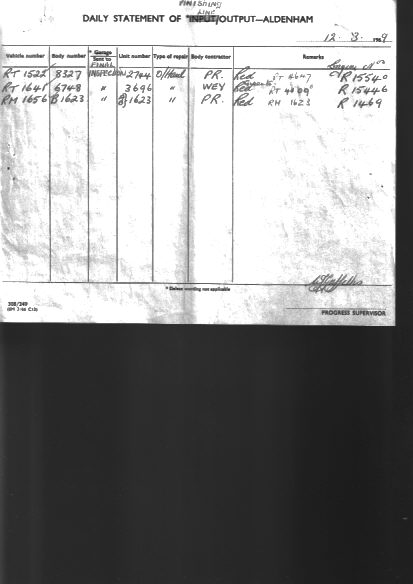 FINISHING
LINE
DAILY STATEMENT OF *INPUT/OUTPUT—ALDENHAM
12. 3. 1969
Vehicle number Body number * Garage Sent to Unit number Type of repair Body contractor Remarks Engine Nos
FINAL
RT 1522 8327 INSPECTION 2744 O/Haul PR. Red RT 4647 R 1554
RT 1641 6748 " 3696 " WEY Red RT R 15446
RM 1656 B 1623 " B 1623 " PR. Red RM 1623 R 1469
* Delete wording not applicable
308/249
PROGRESS SUPERVISOR